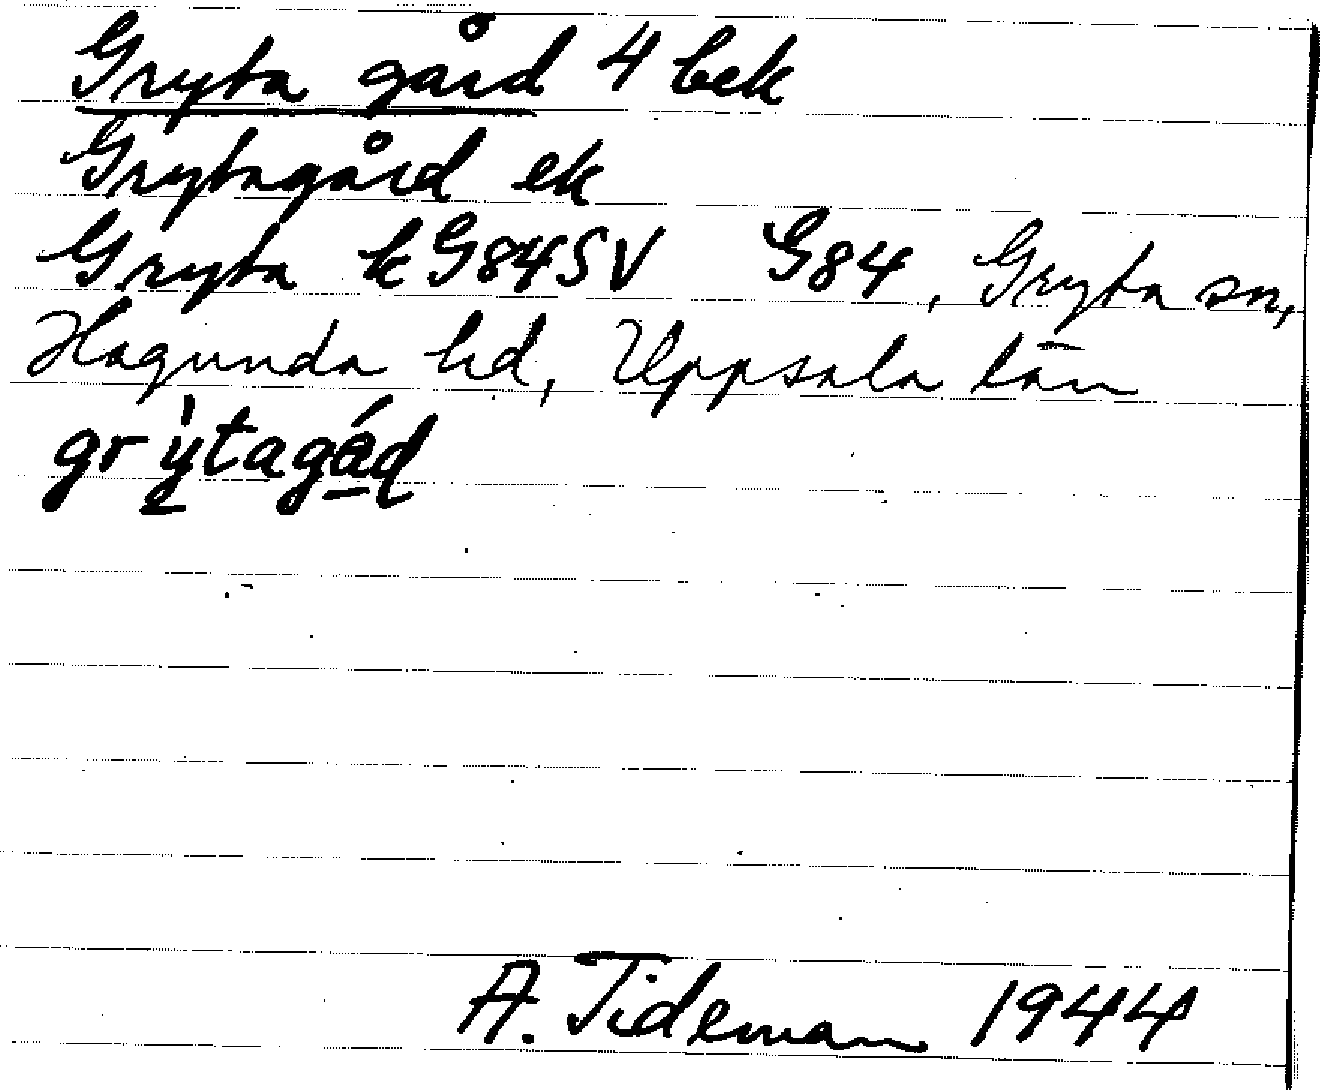 Gryta gård 4 bek
Grytagård ek
Gryta k G84SV G84, Gryta sn,
Hagunda hd, Uppsala län
grỳtagád
A. Tideman 1944